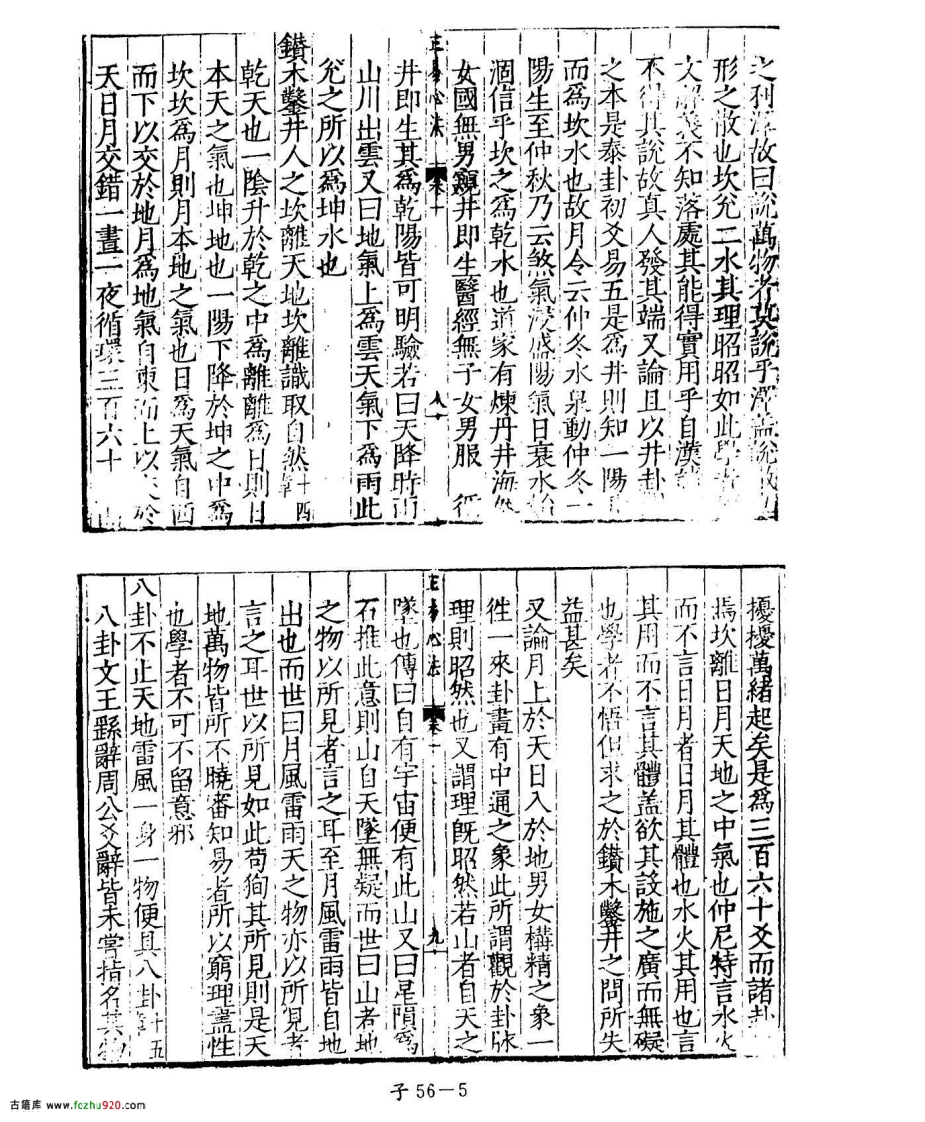 之利澤故曰說萬物者莫說乎澤蓋說散
形之散也坎兊二水其理昭昭如此學者
文解義不知落處其能得實用乎自漢諸
不得其說故真人發其端又論且以井卦
之本是泰卦初爻易五是為井則知一陽
而為坎水也故月令云仲冬水泉動仲冬一
陽生至仲秋乃云煞氣浸盛陽氣日衰水始
涸信乎坎之為乾水也道家有煉丹井海外
女國無男窺井即生醫經無子女男服
正易心法
八
井即生其為乾陽皆可明驗若曰天降時雨
山川出雲又曰地氣上為雲天氣下為雨此
兊之所以為坤水也
鑽木鑿井人之坎離天地坎離識取自然 十四章
乾天也一陰升於乾之中為離離為日則日
本天之氣也坤地也一陽下降於坤之中為
坎坎為月則月本地之氣也日為天氣自西
而下以交於地月為地氣自東而上以交於
天日月交錯一晝一夜循環三百六十
擾擾萬緒起矣是為三百六十爻而諸卦
焉坎離日月天地之中氣也仲尼特言水火
而不言日月者日月其體也水火其用也言
其用而不言其體盖欲其設施之廣而無礙
也學者不悟但求之於鑽木鑿井之問所失
益甚矣
又論月上於天日入於地男女構精之象一
徃一來卦畫有中通之象此所謂觀於卦脉
理則昭然也又謂理旣昭然若山者自天之
正易心法
九
墜也傳曰自有宇宙便有此山又曰星隕為
石推此意則山自天墜無疑而世曰山者地
之物以所見者言之耳至月風雷雨皆自地
出也而世曰月風雷雨天之物亦以所見者
言之耳世以所見如此苟狥其所見則是天
地萬物皆所不曉審知易者所以窮理盡性
也學者不可不留意邪
八卦不止天地雷風一身一物便具八卦 十五章
八卦文王繇辭周公爻辭皆未嘗指名其物
子56—5
古籍库 www.fozhu920.com